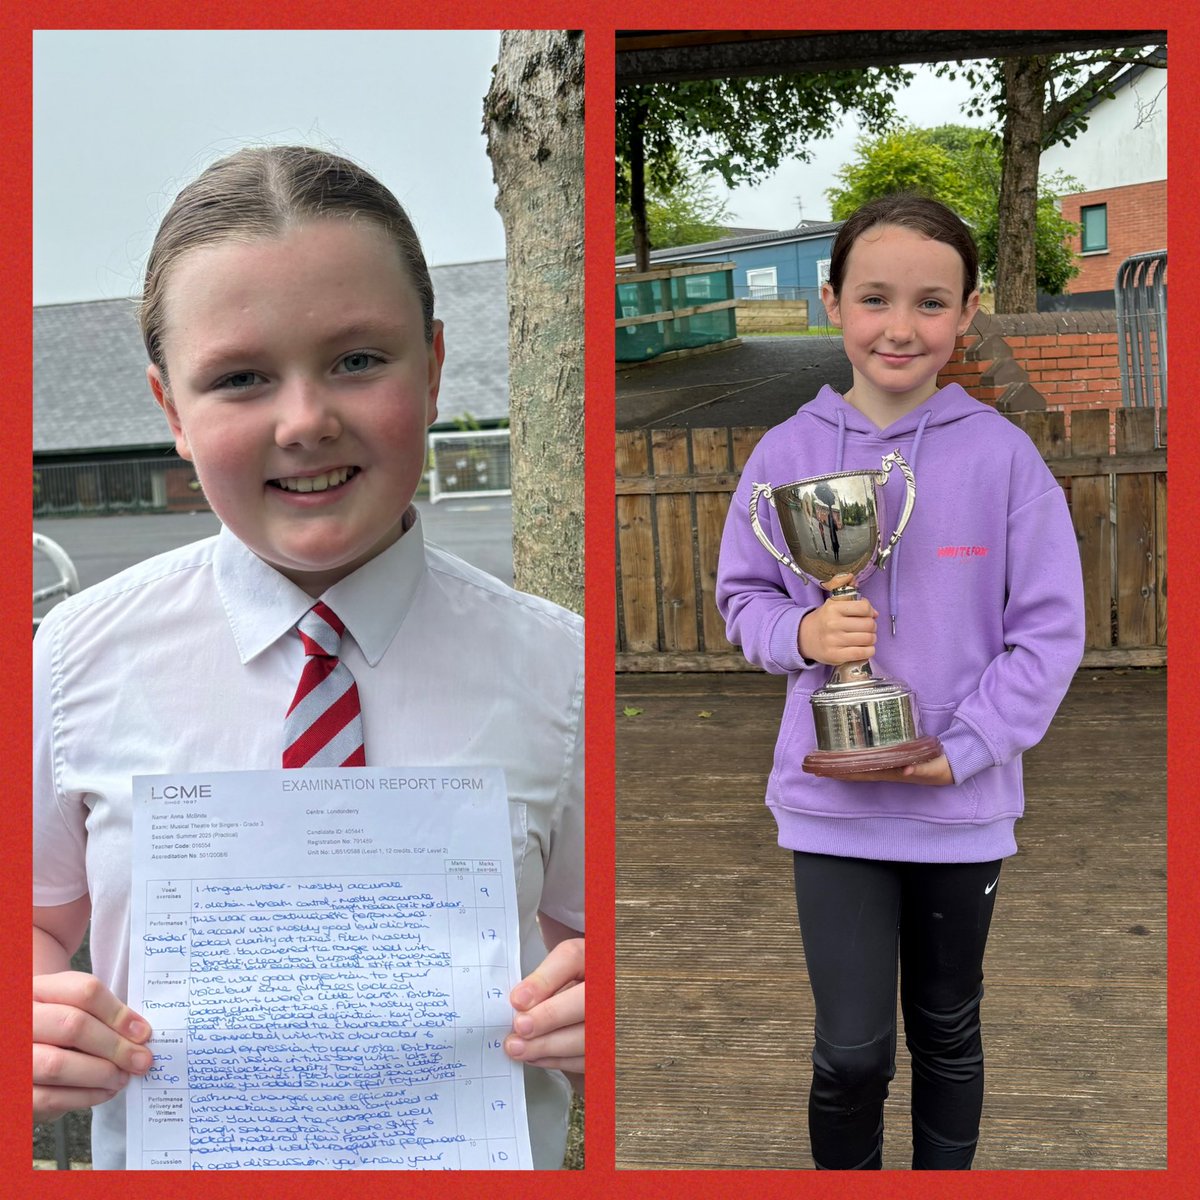 LCME
SINCE 1997
EXAMINATION REPORT FORM
Name: Anna McBride
Centre: Londonderry
Exam: Musical Theatre for Singers - Grade 3
Session: Summer 2025 (Practical)
Candidate ID: 405441
Teacher Code: 016554
Registration No: 791459
Accreditation No: 501/2008/6
Unit No: L/651/0588 (Level 1, 12 credits, EQF Level 2)
Marks available
Marks awarded
1 Vocal exercises
10
1. tongue twister - mostly accurate
2. diction & breath control - mostly accurate
though reason for it not clear.
9
2 Performance 1
Consider Yourself
20
This was an enthusiastic performance.
The accent was mostly good but diction
lacked clarity at times. Pitch mostly
secure. You covered the range well with
a bright, clear tone throughout. Movements
were seemed a little stiff at times
17
3 Performance 2
Tomorrow
20
There was good projection to your
voice but some phrases lacked
warmth & were a little harsh. Diction
lacked clarity at times. Pitch mostly good
though notes lacked definition. Key change
good. You captured the character well.
17
4 Performance 3
Far I'll Go
20
You connected with this character &
added expression to your voice. Diction
was an issue in this song with lots of
phrases lacking clarity. Tone was a little
strident at times. Pitch lacked some definition
because you added so much effort to your voice.
16
5 Performance delivery and Written Programmes
20
Costume changes were efficient
introductions were a little confused at
times. You used the space well
though some actions were stiff &
lacked natural flow. Focus was
maintained well throughout the performance.
17
6 Discussion
10
A good discussion: you know your
10
WHITEFOX